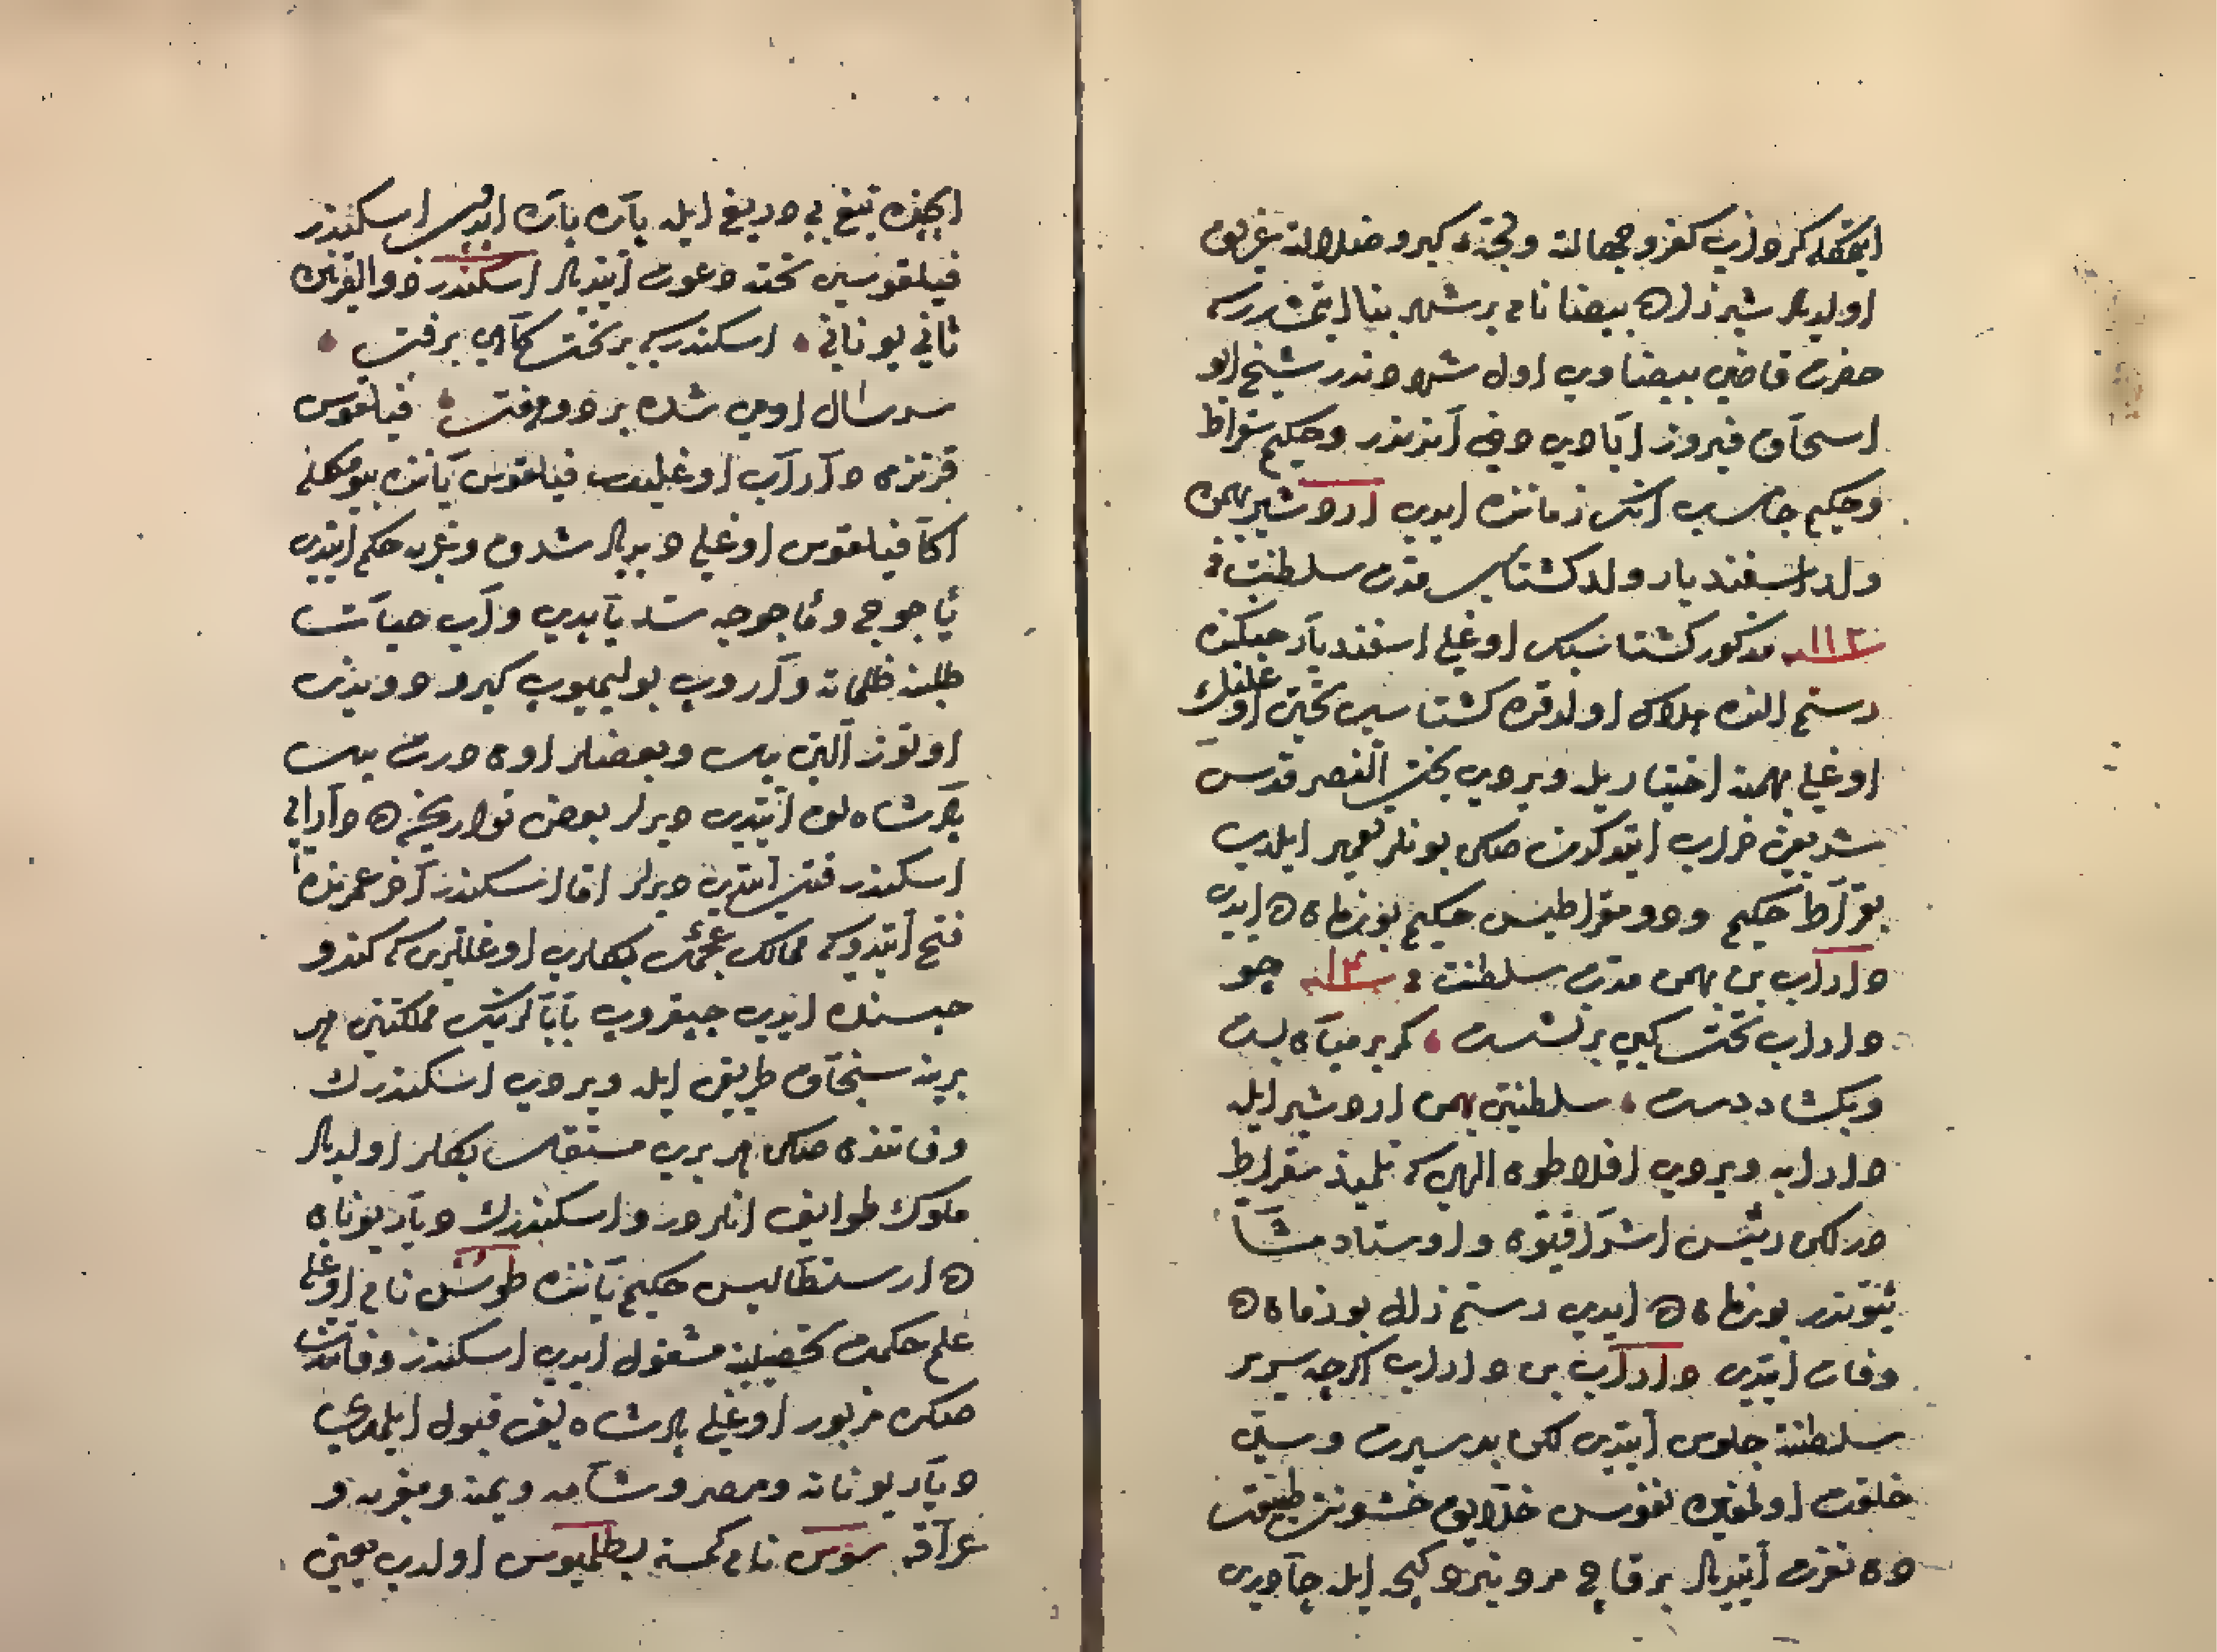 ایتمکله کرداب کفر و جهالته و لجه کیر و ضلالته غریق
اولدیلر شیرازده بیضا نام بر شهر بنا ایتمشدر که
حضرت قاضی بیضاوی اول شهردندر شیخ ابو
اسحاق فیروز ابادی دخی آندندر و حکیم سقراط
و حکیم جاماسب انک زماننده ایدی اردشیر بهمن
ولد اسفندیار ولد کشتاسب مدت سلطنت
سنه ١١٢ مذکور کشتاسبک اوغلی اسفندیار جنکنده
رستم النده هلاک اولدقده کشتاسب تختن اوغلنک
اوغلی بهمنه اختیاریله ویردی بخت النصر قدس
شریفی خراب ایتدکدن صکره بونلر تعمیر ایلدی
بقراط حکیم و دومقراطیس حکیم بو زمانده ایدی
داراب بن بهمن مدت سلطنت سنه ١٤ چو
داراب تخت کیی برنشست کمر بر میان بست
و بکشاد دست سلطنتن بهمن اردشیر ایله
دارابه ویردی افلاطون الهی که تلمیذ سقراط
در لکن رئیس اشراقیون و اوستاد مشا
ئیوندر بو زمانده ایدی رستم زال بو زمانده
وفات ایتدی داراب بن داراب اکرچه سریر
سلطنته جلوس ایتدی لکن بد سیرت و سیئ
خلقت اولمغین نفوس خلایق خشونت طبیعت
دن نفرت ایتدیلر
ایکن تیغ بی دریغ ایله پاره پاره ایدوب اسکندر
فیلقوسی تخته دعوت ایتدیلر اسکندر ذو القرنین
ثانی یونانی اسکندر که بر تخت کامی برفت
سر سال اوی شده بر دو وهفت فیلقوس
قزندن داراب اوغلیدر فیلقوس یاننده بیومکله
اکا فیلقوس اوغلی دیدیلر شرق و غربه حکم ایتدی
یأجوج و مأجوجه سد یاپدی و آب حیات
طلبنه ظلماته واردی بولیمیوب کیرو دوندی
اوتوز التی ییل و بعضلر اون درت ییل
پادشاهلق ایتدی دیرلر بعض تواریخده دارایی
اسکندر قتل ایتدی دیرلر اما اسکندر آخر عمرنده
فتح ایتدوکی ممالک عجمک بکلری اوغللری که کندو
حبسنده ایدی چیقروب بابالرینک مملکتنی هر
برینه سنجاق طریقی ایله ویردی اسکندرک
وفاتندن صکره هر بری مستقل بکلر اولدیلر
ملوک طوایف انلردر و اسکندرک دیار یونان
ده ارستطالیس حکیم یاننده طوس نام اوغلی
علم حکمت تحصیلینه مشغول ایدی اسکندر وفاتندن
صکره مزبور اوغلی پادشاهلغی قبول ایلمدی
دیار یونانه و مصر و شامه و یمنه و مغربه و
عراقه سوس نام کمسنه بطلمیوس اولدی یعنی